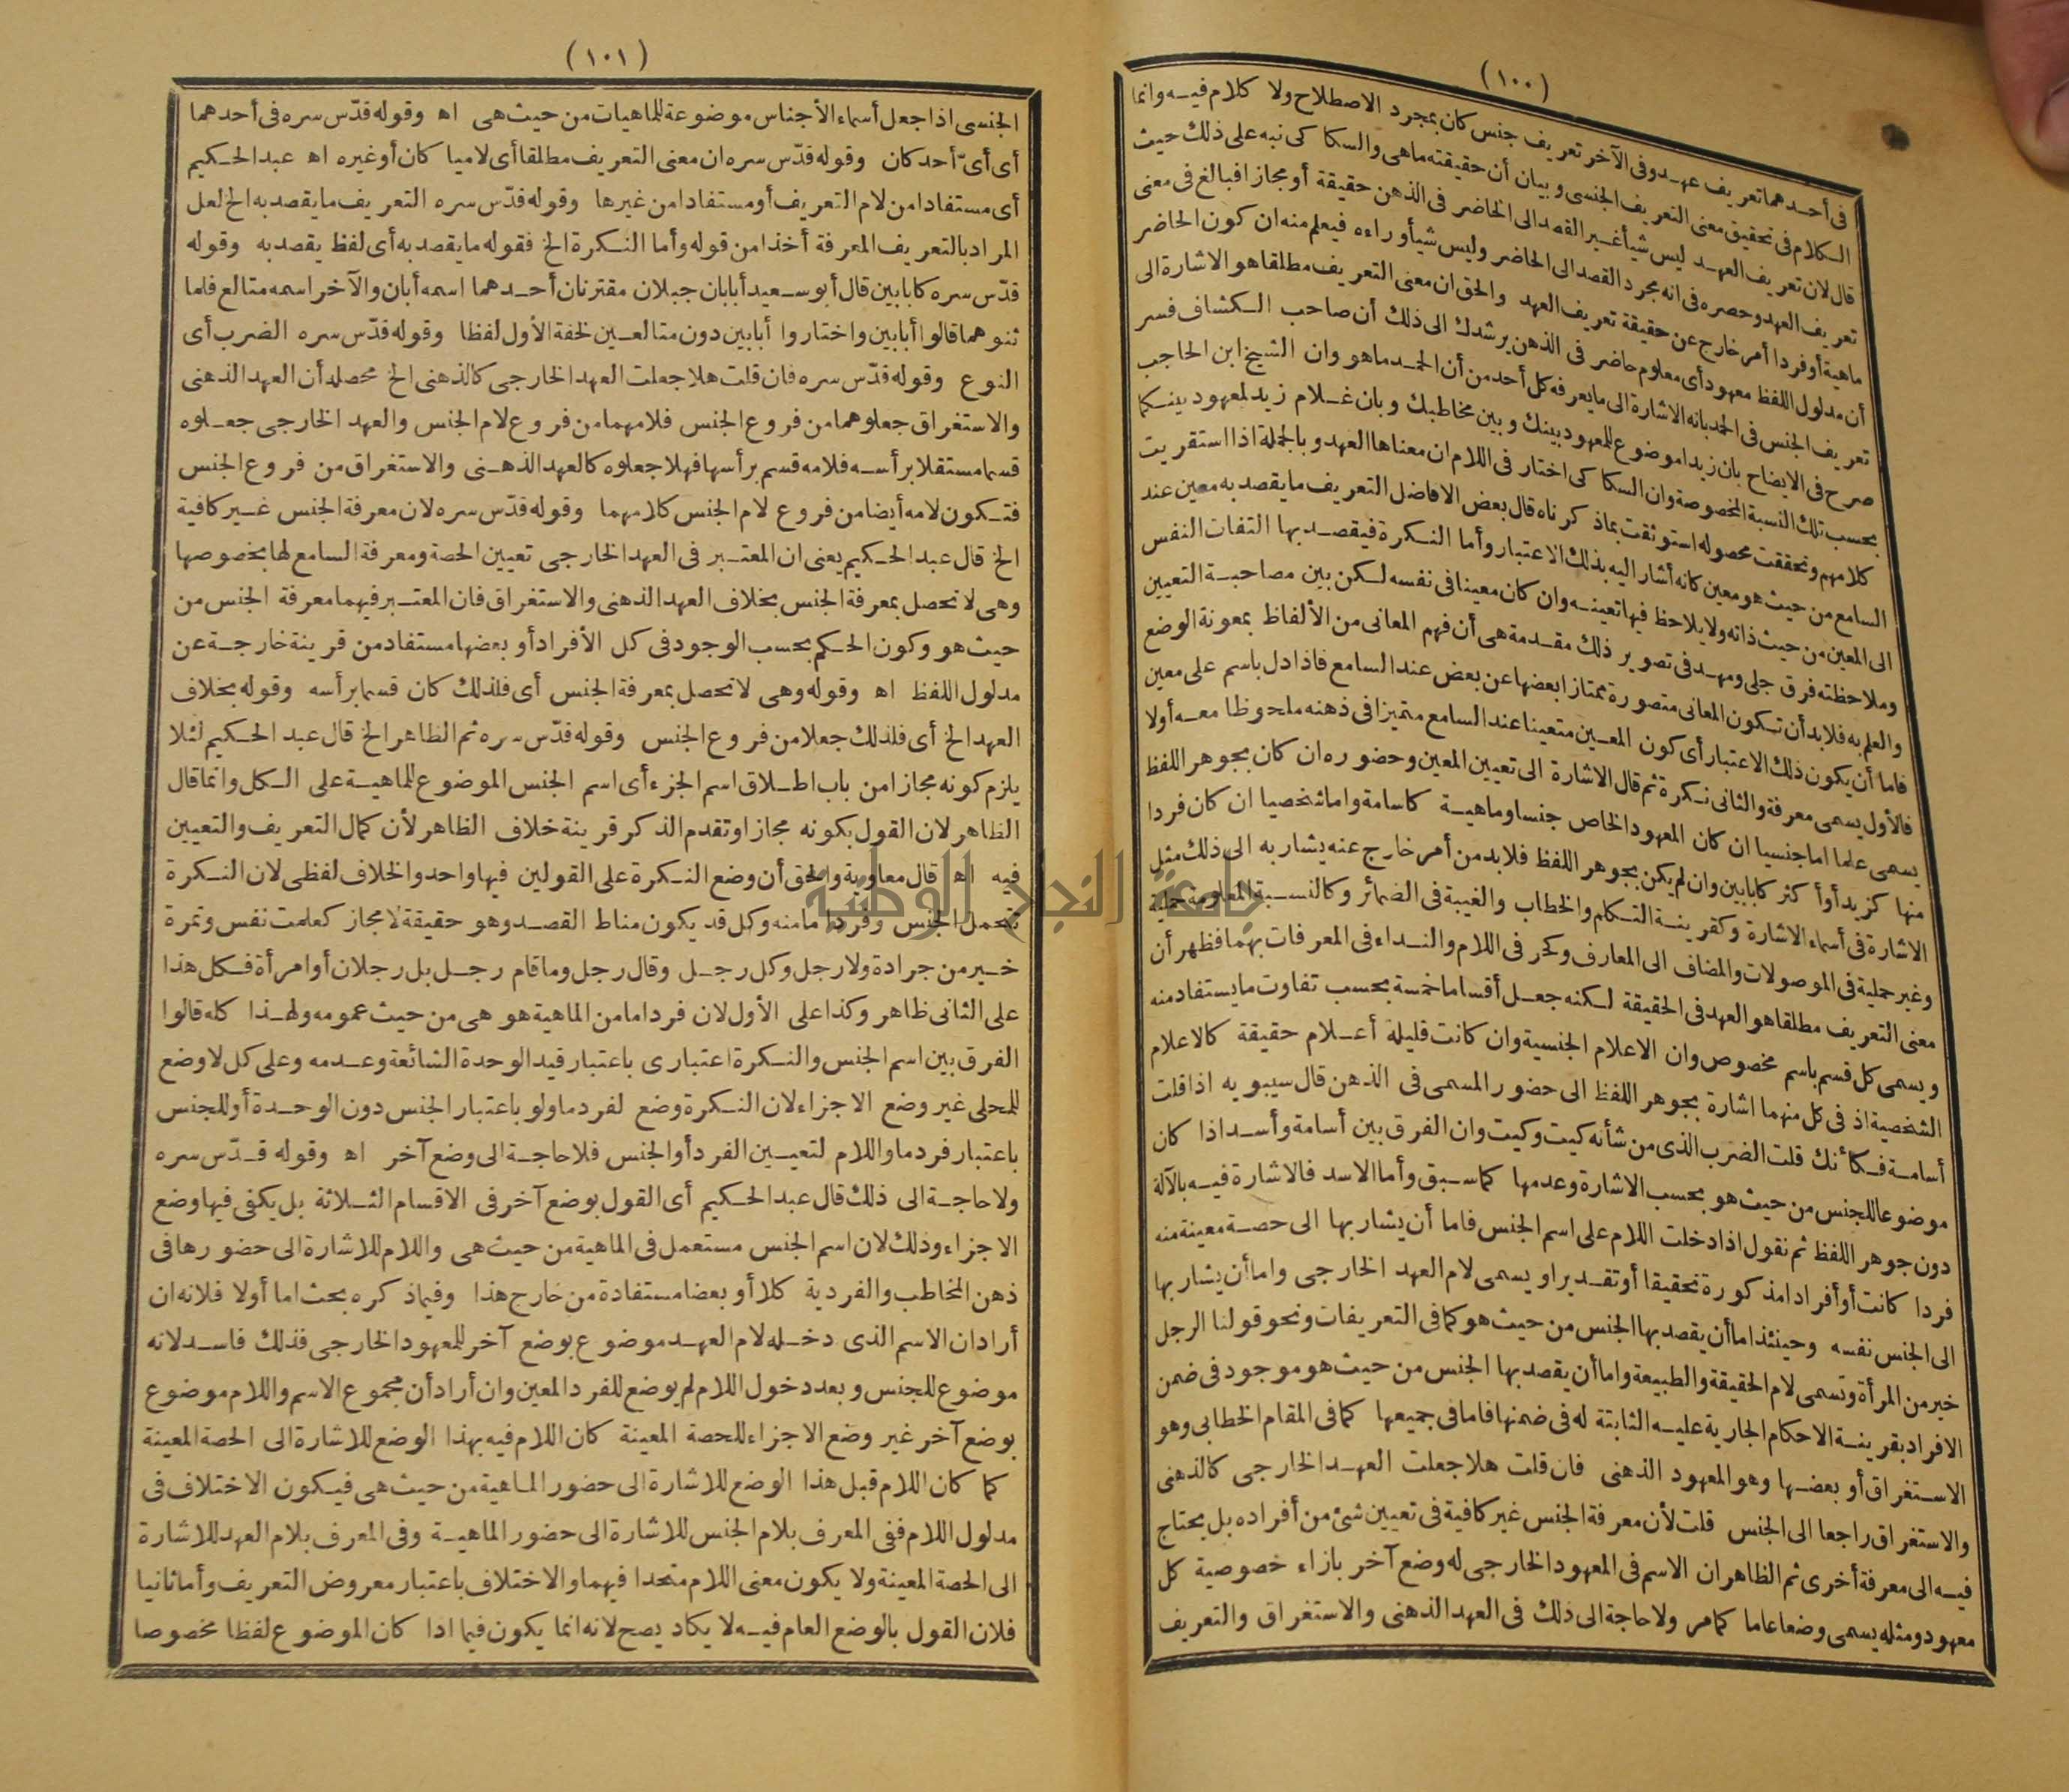 (١٠٠)
فى أحدهما تعريف عهد وفى الآخر تعريف جنس كان بمجرد الاصطلاح ولا كلام فيه وانما
الكلام فى تحقيق معنى التعريف الجنسى وبيان أن حقيقته ماهى والسكاكى نبه على ذلك حيث
قال لان تعريف العهد ليس شيأ غير القصد الى الحاضر فى الذهن حقيقة أو مجازا فبالغ فى معنى
تعريف العهد وحصره فى انه مجرد القصد الى الحاضر وليس شيأ وراءه فيعلم منه ان كون الحاضر
ماهية أو فردا أمر خارج عن حقيقة تعريف العهد والحق ان معنى التعريف مطلقا هو الاشارة الى
أن مدلول اللفظ معهود أى معلوم حاضر فى الذهن يرشدك الى ذلك أن صاحب الكشاف فسر
تعريف الجنس فى الحمد بانه الاشارة الى ما يعرفه كل أحد من أن الحمد ما هو وان الشيخ ابن الحاجب
صرح فى الايضاح بان زيدا موضوع للمعهود بينك وبين مخاطبك وبان غلام زيد لمعهود بينكما
بحسب تلك النسبة المخصوصة وان السكاكى اختار فى اللام ان معناها العهد وبالجملة اذا استقريت
كلامهم وتحققت محصوله استوثقت بماذكرناه قال بعض الافاضل التعريف ما يقصد به معين عند
السامع من حيث هو معين كانه أشار اليه بذلك الاعتبار وأما النكرة فيقصد بها التفات النفس
الى المعين من حيث ذاته ولا يلاحظ فيها تعينه وان كان معينا فى نفسه لكن بين مصاحبة التعيين
وملاحظته فرق جلى ومهد فى تصوير ذلك مقدمة هى أن فهم المعانى من الألفاظ بمعونة الوضع
والعلم به فلا بد أن تكون المعانى متصورة ممتازا بعضها عن بعض عند السامع فاذا دل باسم على معين
فاما أن يكون ذلك الاعتبار أى كون المعين متعينا عند السامع متميزا فى ذهنه ملحوظا معه أولا
فالأول يسمى معرفة والثانى نكرة ثم قال الاشارة الى تعيين المعين وحضوره ان كان بجوهر اللفظ
يسمى علما اما جنسيا ان كان المعهود الخاص جنسا وماهية كاسامة واما شخصيا ان كان فردا
منها كزيد أو أكثر كابابين وان لم يكن بجوهر اللفظ فلا بد من أمر خارج عنه يشار به الى ذلك مثل
الاشارة فى أسماء الاشارة وكقرينة التكلم والخطاب والغيبة فى الضمائر وكالنسبة المعلومة جملية
وغير جملية فى الموصولات والمضاف الى المعارف وكحرفى اللام والنداء فى المعرفات بهما فظهر أن
معنى التعريف مطلقا هو العهد فى الحقيقة لكنه جعل أقساما خمسة بحسب تفاوت ما يستفاد منه
ويسمى كل قسم باسم مخصوص وان الاعلام الجنسية وان كانت قليلة أعلام حقيقة كالاعلام
الشخصية اذ فى كل منهما اشارة بجوهر اللفظ الى حضور المسمى فى الذهن قال سيبويه اذا قلت
أسامة فكأنك قلت الضرب الذى من شأنه كيت وكيت وان الفرق بين أسامة وأسد اذا كان
موضوعا للجنس من حيث هو بحسب الاشارة وعدمها كما سبق وأما الاسد فالاشارة فيه بالآلة
دون جوهر اللفظ ثم نقول اذا دخلت اللام على اسم الجنس فاما أن يشار بها الى حصة معينة منه
فردا كانت أو أفرادا مذكورة تحقيقا أو تقديرا ويسمى لام العهد الخارجى واما أن يشار بها
الى الجنس نفسه وحينئذ اما أن يقصد بها الجنس من حيث هو كما فى التعريفات ونحو قولنا الرجل
خير من المرأة وتسمى لام الحقيقة والطبيعة واما أن يقصد بها الجنس من حيث هو موجود فى ضمن
الافراد بقرينة الاحكام الجارية عليه الثابتة له فى ضمنها فاما فى جميعها كما فى المقام الخطابى وهو
الاستغراق أو بعضها وهو المعهود الذهنى فان قلت هلا جعلت العهد الخارجى كالذهنى
والاستغراق راجعا الى الجنس قلت لأن معرفة الجنس غير كافية فى تعيين شئ من أفراده بل يحتاج
فيه الى معرفة أخرى ثم الظاهر ان الاسم فى المعهود الخارجى له وضع آخر بازاء خصوصية كل
معهود ومثله يسمى وضعا عاما كما مر ولا حاجة الى ذلك فى العهد الذهنى والاستغراق والتعريف
(١٠١)
الجنسى اذا جعل أسماء الأجناس موضوعة للماهيات من حيث هى اه وقوله قدّس سره فى أحدهما
أى أىّ أحد كان وقوله قدّس سره ان معنى التعريف مطلقا أى لاميا كان أو غيره اه عبد الحكيم
أى مستفادا من لام التعريف أو مستفادا من غيرها وقوله قدّس سره التعريف ما يقصد به الخ لعل
المراد بالتعريف المعرفة أخذا من قوله وأما النكرة الخ فقوله ما يقصد به أى لفظ يقصد به وقوله
قدّس سره كابابين قال أبو سعيد أبابان جبلان مقترنان أحدهما اسمه أبان والآخر اسمه متالع فلما
ثنوهما قالوا أبابين واختاروا أبابين دون متالعين لخفة الأول لفظا وقوله قدّس سره الضرب أى
النوع وقوله قدّس سره فان قلت هلا جعلت العهد الخارجى كالذهنى الخ محصله أن العهد الذهنى
والاستغراق جعلوهما من فروع الجنس فلامهما من فروع لام الجنس والعهد الخارجى جعلوه
قسما مستقلا برأسه فلامه قسم برأسها فهلا جعلوه كالعهد الذهنى والاستغراق من فروع الجنس
فتكون لامه أيضا من فروع لام الجنس كلامهما وقوله قدّس سره لان معرفة الجنس غير كافية
الخ قال عبد الحكيم يعنى ان المعتبر فى العهد الخارجى تعيين الحصة ومعرفة السامع لها بخصوصها
وهى لا تحصل بمعرفة الجنس بخلاف العهد الذهنى والاستغراق فان المعتبر فيهما معرفة الجنس من
حيث هو وكون الحكم بحسب الوجود فى كل الأفراد أو بعضها مستفاد من قرينة خارجة عن
مدلول اللفظ اه وقوله وهى لا تحصل بمعرفة الجنس أى فلذلك كان قسما برأسه وقوله بخلاف
العهد الخ أى فلذلك جعلا من فروع الجنس وقوله قدّس سره ثم الظاهر الخ قال عبد الحكيم لئلا
يلزم كونه مجازا من باب اطلاق اسم الجزء أى اسم الجنس الموضوع للماهية على الكل وانما قال
الظاهر لان القول بكونه مجازا وتقدم الذكر قرينة خلاف الظاهر لأن كمال التعريف والتعيين
فيه اه قال معاوية والحق أن وضع النكرة على القولين فيها واحد والخلاف لفظى لان النكرة
تحمل الجنس وفردا ما منه وكل قد يكون مناط القصد وهو حقيقة لا مجاز كعلمت نفس وتمرة
خير من جرادة ولا رجل وكل رجل وقال رجل وما قام رجل بل رجلان أو امرأة فكل هذا
على الثانى ظاهر وكذا على الأول لان فردا ما من الماهية هو هى من حيث عمومه ولهذا كله قالوا
الفرق بين اسم الجنس والنكرة اعتبارى باعتبار قيد الوحدة الشائعة وعدمه وعلى كل لا وضع
للمحلى غير وضع الاجزاء لان النكرة وضع لفرد ما ولو باعتبار الجنس دون الوحدة أو للجنس
باعتبار فرد ما واللام لتعيين الفرد أو الجنس فلا حاجة الى وضع آخر اه وقوله قدّس سره
ولا حاجة الى ذلك قال عبد الحكيم أى القول بوضع آخر فى الاقسام الثلاثة بل يكفى فيها وضع
الاجزاء وذلك لان اسم الجنس مستعمل فى الماهية من حيث هى واللام للاشارة الى حضورها فى
ذهن المخاطب والفردية كلا أو بعضا مستفادة من خارج هذا وفيما ذكره بحث اما أولا فلانه ان
أراد ان الاسم الذى دخله لام العهد موضوع بوضع آخر للمعهود الخارجى فذلك فاسد لانه
موضوع للجنس وبعد دخول اللام لم يوضع للفرد المعين وان أراد أن مجموع الاسم واللام موضوع
بوضع آخر غير وضع الاجزاء للحصة المعينة كان اللام فيه بهذا الوضع للاشارة الى الحصة المعينة
كما كان اللام قبل هذا الوضع للاشارة الى حضور الماهية من حيث هى فيكون الاختلاف فى
مدلول اللام ففى المعرف بلام الجنس للاشارة الى حضور الماهية وفى المعرف بلام العهد للاشارة
الى الحصة المعينة ولا يكون معنى اللام متحدا فيهما والاختلاف باعتبار معروض التعريف وأما ثانيا
فلان القول بالوضع العام فيه لا يكاد يصح لانه انما يكون فيما اذا كان الموضوع لفظا مخصوصا
جامعة النجاح الوطنية